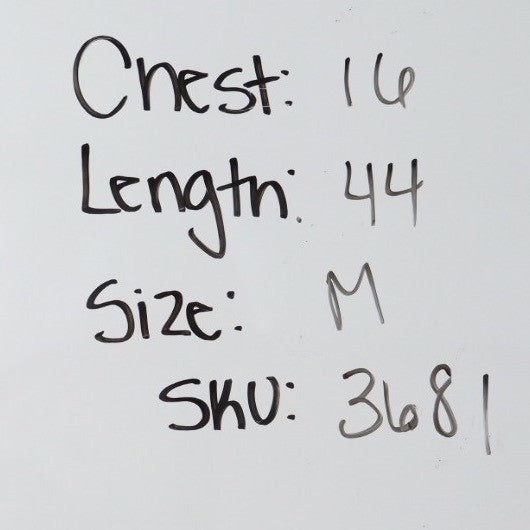 Chest: 16
Length: 44
Size: M
SKU: 3681